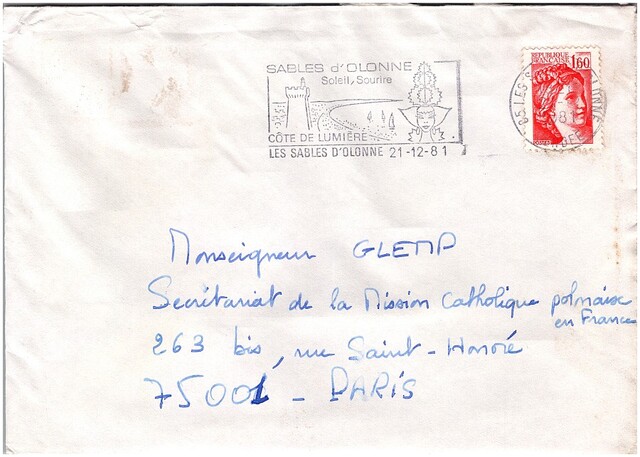 SABLES d'OLONNE
Soleil, Sourire
CÔTE DE LUMIÈRE
LES SABLES D'OLONNE 21-12-81
REPUBLIQUE
FRANÇAISE 1,60
85 LES
Monseigneur GLEMP
Secrétariat de la Mission Catholique polonaise
en France
263 bis, rue Saint-Honoré
75001 - PARIS